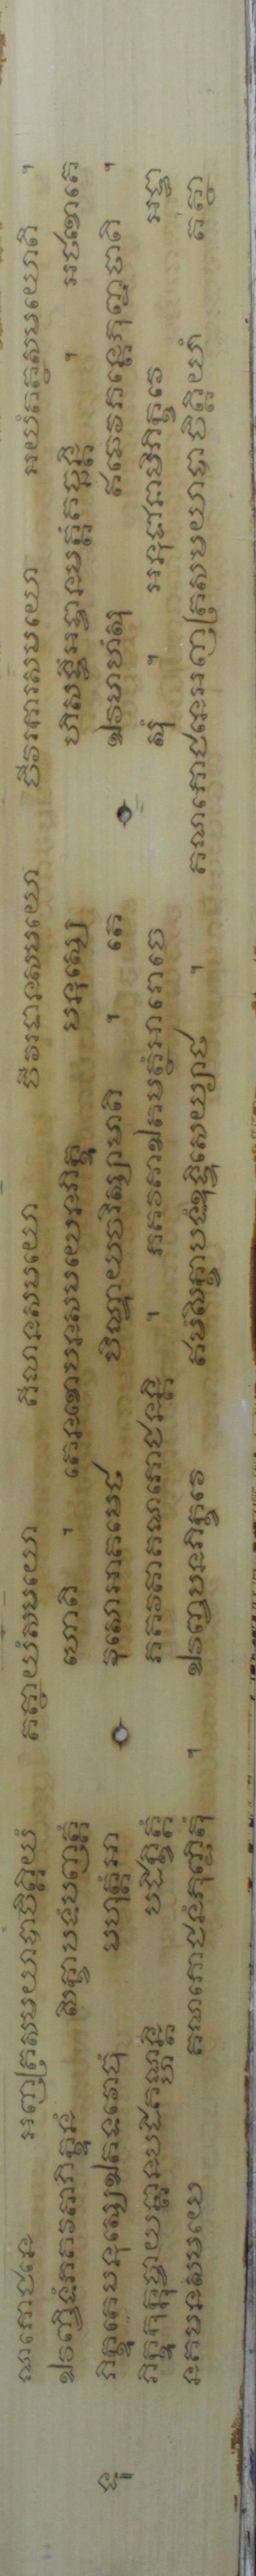 ណភោជនេ អញត្រសមយាបាចិត្តិយំ តត្ថាយំសមយោ គិលានសមយោ ចីវរទានសមយោ ចីវរការសមយោ អយំតត្ថសមយោតិ ។
ឯវញ្ចិទំភគវតាភិក្ខូនំ សិក្ខាបទំបញត្តំ ហោតិ ។ តេនខោបនសមយេនភិក្ខូ មនុស្សេ ហិសទ្ធឹអទ្ធានមគ្គំគច្ឆន្តិ ។ អថខោតេ
ទុ ភិក្ខូតេមនុស្សេឯតទវោចុំ មហុត្តំអា វុសោអាគមេថ បិណ្ឌាយចរិស្សាមាតិ ។ តេ ឯវមាហំសុ ឥធេវភន្តេភុញ្ជថាតិ ។
ភិក្ខូកុក្កុច្ចាយន្តានបដិគណ្ហន្តិ បដិក្ខិត្តំ ភគវតាគណភោជនន្តិ ។ ភគវតោឯតមត្ថំអារោចេ សុំ ។ អនុជានាមិភិក្ខវេ អទ្ធា
នគមនសមយេ គណភោជនំភុញ្ជិតុំ ។ ឯវញ្ចបនភិក្ខវេ ឥមំសិក្ខាបទំឧទ្ទិសេយ្យាថ ។ គណភោជនេអញត្រសមយាបាចិត្តិយំ តត្ថា